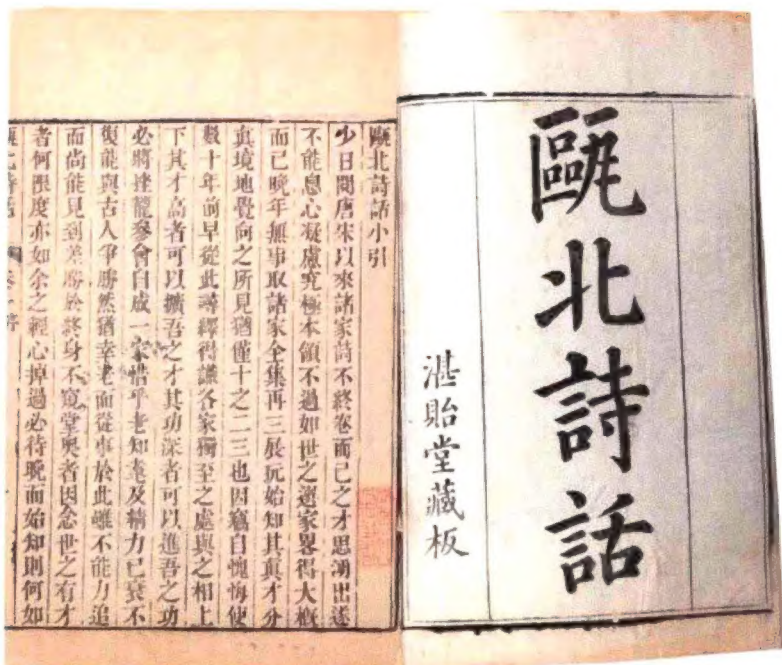 甌北詩話
湛貽堂藏板
甌北詩話小引
少日閱唐宋以來諸家詩不終卷而己之才思湧出遂
不能息心凝慮究極本領不過如世之選家畧得大概
而已晚年無事取諸家全集再三展玩始知其真才分
真境地覺向之所見猶僅十之二三也因竊自愧悔使
數十年前早從此尋繹得識各家獨至之處與之相上
下其才高者可以擴吾之才其功深者可以進吾之功
必將挫籠參會自成一家惜乎老知耄及精力已衰不
復能與古人爭勝然猶幸老而從事於此雖不能力追
而尚能見到差勝於終身不窺堂奧者因念世之有才
者何限度亦如余之經心掉過必待晚而始知則何如
甌北詩話